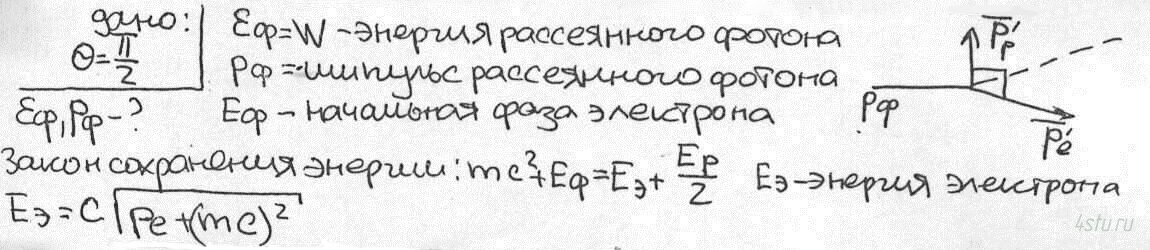 дано:
Θ = π/2
Eф, Pф - ?
Eф = W - энергия рассеянного фотона
Pф = импульс рассеянного фотона
Eф - начальная фаза электрона
Pф
P̄'р
P̄'е
Закон сохранения энергии: mc² + Eф = Eэ + Eр/2 Eэ - энергия электрона
Eэ = C√(Pe + (mc)²)
4stu.ru